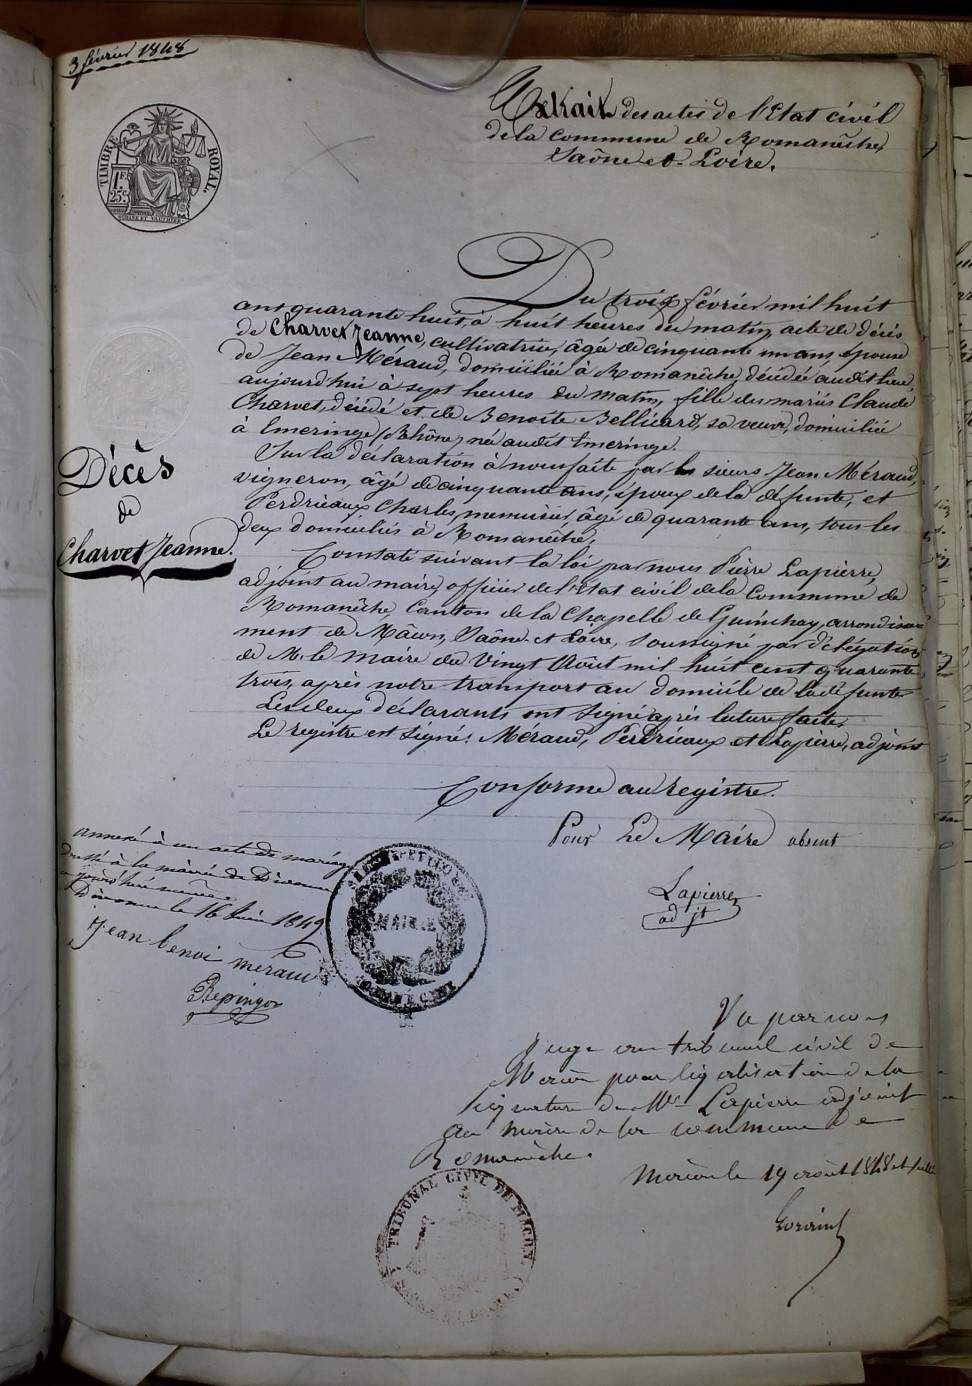 3 février 1848
TIMBRE ROYAL.
1F.
25c.
Extrait des actes de l'Etat civil
de la Commune de Romanêche
Saône et Loire.
Du trois février mil huit
cent quarante huit, à huit heures du matin, acte de décès
de Charvet Jeanne, cultivatrice, âgée de cinquante un ans, épouse
de Jean Méraud, domiciliée à Romanêche, décédée audit lieu,
aujourd'hui à sept heures du matin, fille des mariés Claude
Charvet, décédé et de Benoîte Bellicard, sa veuve, domiciliée
à Emeringe (Rhône) née audit Emeringe.
Sur la déclaration à nous faite par les sieurs Jean Méraud,
vigneron, âgé de cinquante ans, époux de la défunte, et
Perdrieaux Charles, menuisier, âgé de quarante ans, tous les
deux domiciliés à Romanêche;
Constaté suivant la loi, par nous Pierre Lapierre,
adjoint au maire, officier de l'Etat civil de la Commune de
Romanêche Canton de la Chapelle de Guinchay, arrondisse
ment de Mâcon, Saône et Loire, soussigné par délégation
de Mr le Maire du vingt Août mil huit cent quarante
trois, après notre transport au domicile de la défunte
Les deux déclarants ont signé après lecture faite.
Le registre est signé: Meraud, Perdrieaux et Lapierre, adjoint
Décès
de
Charvet Jeanne.
Conforme au registre.
Pour Le Maire absent
Lapierre
adjt
annexé à un acte de mariage
dressé à la mairie de Divonne
aujourd'hui même
Divonne le 16 Juin 1849
Jean benoi meraud
MAIRIE
Vu par nous
juge au tribunal civil de
Macon pour légalisation de la
signature de Mr Lapierre adjoint
au maire de la commune de
Romanêche.
Macon le 19 août 1848
TRIBUNAL CIVIL DE MACON